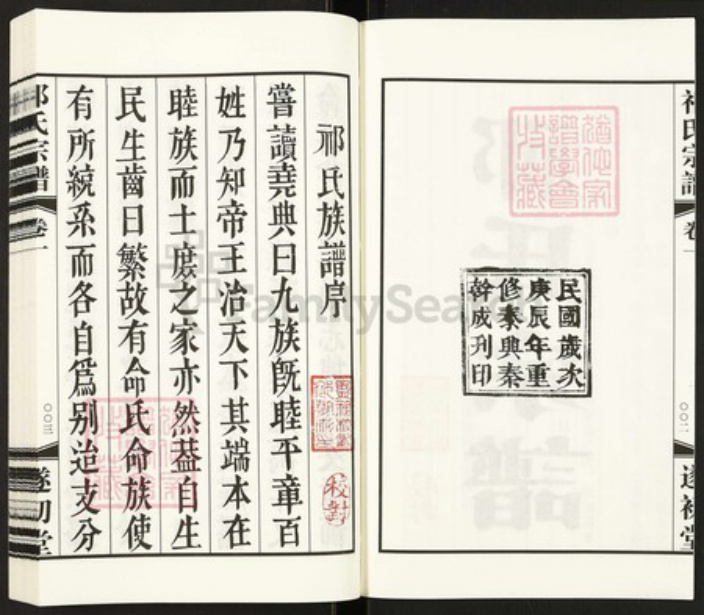 民國歲次
庚辰年重
修泰興秦
幹成刋印
祁氏宗譜
卷一
〇〇二
遂初堂
祁氏族譜序
嘗讀堯典曰九族旣睦平章百
姓乃知帝王治天下其端本在
睦族而士庶之家亦然葢自生
民生齒日繁故有命氏命族使
有所統系而各自爲别迨支分
校對
祁氏宗譜
卷一
〇〇三
遂初堂
FamilySearch